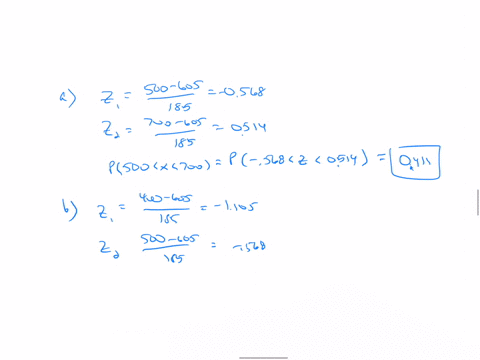 a) Z₁ = (500-605)/185 = -0.568
Z₂ = (700-605)/185 = 0.514
P(500<x<700) = P(-.568<z<0.514) = 0.411
b) Z₁ = (400-605)/185 = -1.105
Z₂ (500-605)/185 = -.568